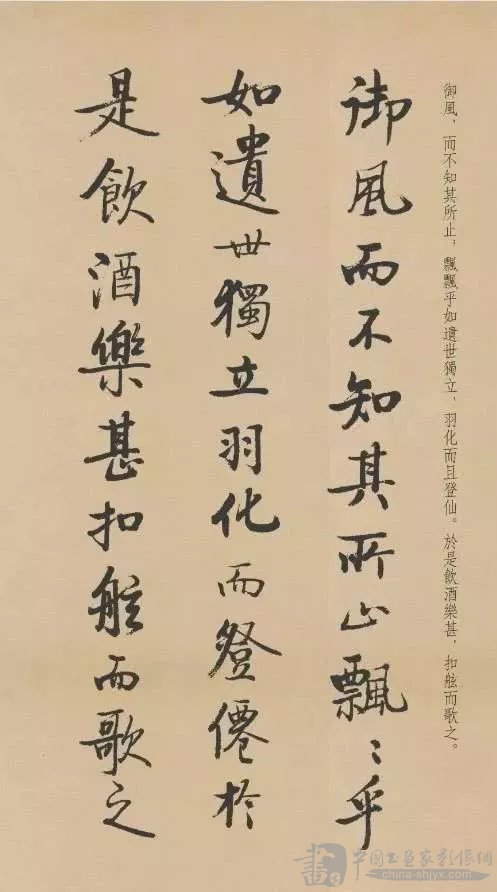 御風、而不知其所止；飄飄乎如遺世獨立，羽化而且登仙。於是飲酒樂甚，扣舷而歌之。
御風而不知其所止飄〻乎
如遺世獨立羽化而登僊於
是飲酒樂甚扣舷而歌之
中国书画家影像网
china-shjyx.com